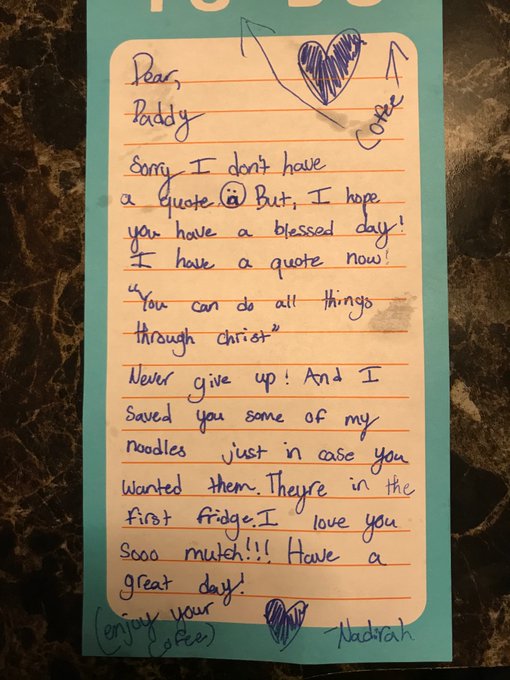 TO DO
Dear,
Daddy
Cofee
Sorry I don't have
a quote But, I hope
you have a blessed day!
I have a quote now!
"You can do all things
through christ"
Never give up! And I
saved you some of my
noodles just in case you
wanted them. Theyre in the
first fridge. I love you
sooo mutch!!! Have a
great day!
(enjoy your
Cofee)
Nadirah